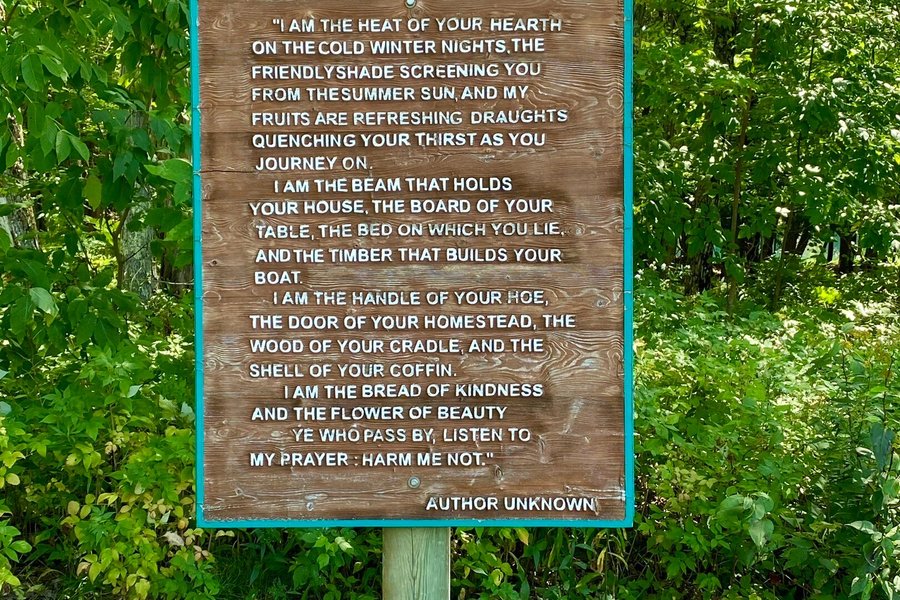 "I AM THE HEAT OF YOUR HEARTH
ON THE COLD WINTER NIGHTS, THE
FRIENDLY SHADE SCREENING YOU
FROM THE SUMMER SUN, AND MY
FRUITS ARE REFRESHING DRAUGHTS
QUENCHING YOUR THIRST AS YOU
JOURNEY ON.
I AM THE BEAM THAT HOLDS
YOUR HOUSE, THE BOARD OF YOUR
TABLE, THE BED ON WHICH YOU LIE,
AND THE TIMBER THAT BUILDS YOUR
BOAT.
I AM THE HANDLE OF YOUR HOE,
THE DOOR OF YOUR HOMESTEAD, THE
WOOD OF YOUR CRADLE, AND THE
SHELL OF YOUR COFFIN.
I AM THE BREAD OF KINDNESS
AND THE FLOWER OF BEAUTY
YE WHO PASS BY, LISTEN TO
MY PRAYER : HARM ME NOT."
AUTHOR UNKNOWN